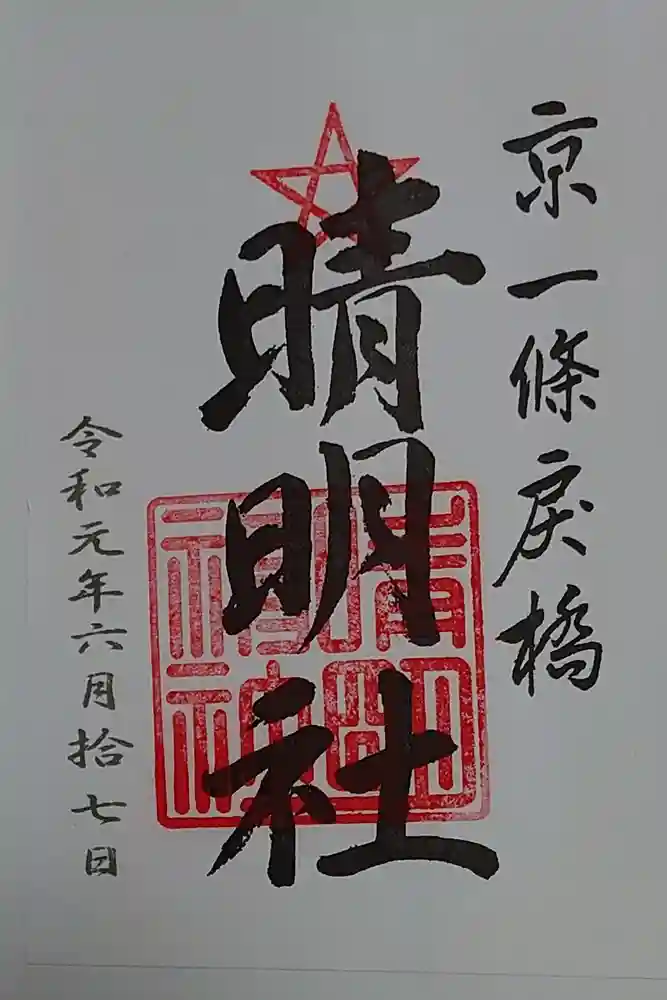 京一條戻橋
晴明社
晴明神社
令和元年六月拾七日